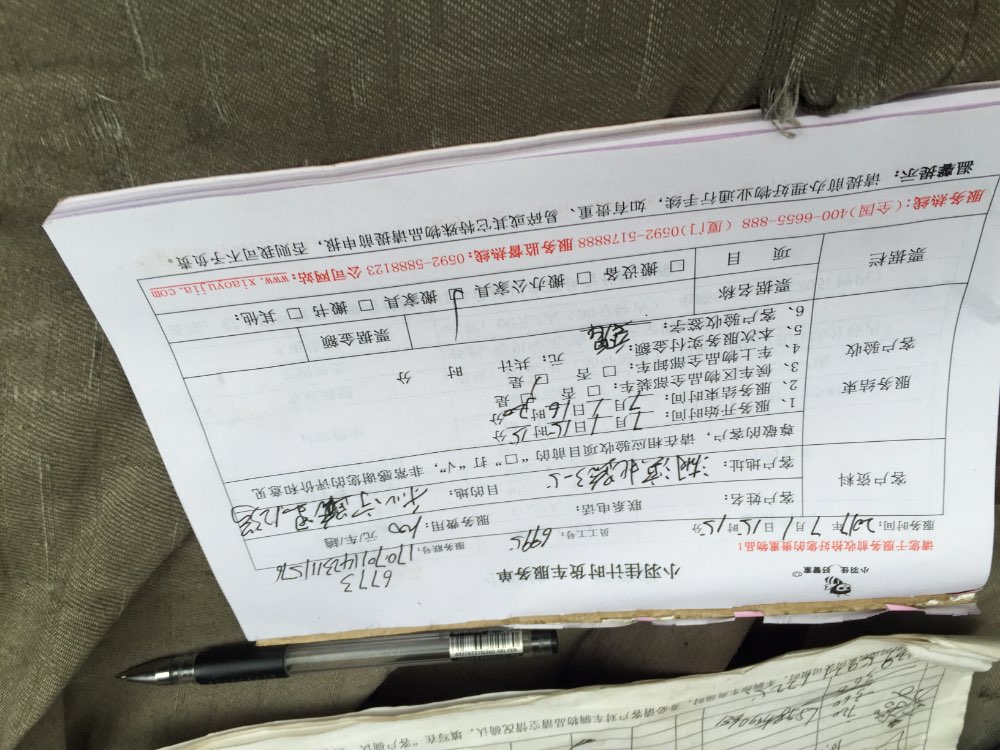 小羽佳 好管家
小羽佳计时货车服务单
6773
请您于服务前收拾好您的贵重物品!
服务时间: 2017年7月1日15时15分 员工工号: 6995 服务联号: 170701142311576
客户资料
客户姓名: 联系电话: 服务费用: 100 元/车/趟
客户地址: 目的地:
尊敬的客户, 请在相应验收项目前的“□”打“√”, 非常感谢您的评价和意见
服务结束
1、服务开始时间: 7月1日15时15分
2、服务结束时间: 7月1日16时30分
3、候车区物品全部装车: □ 否 □ 是
4、车上物品全部卸车: □ 否 □ 是
客户验收
5、本次服务实付金额: 元; 共计 时 分
6、客户验收签字:
票据栏
票据名称 票据金额
项 目 □ 搬设备 □ 搬办公家具 □ 搬家具 □ 搬书 □ 其他:
服务热线: (全国)400-6655-888 (厦门)0592-5178888 服务监督热线: 0592-5888123 公司网站: www.xiaoyujia.com
温馨提示: 请提前办理好物业通行手续, 如有贵重、易碎或其它特殊物品请提前申报, 否则我司不予负责。